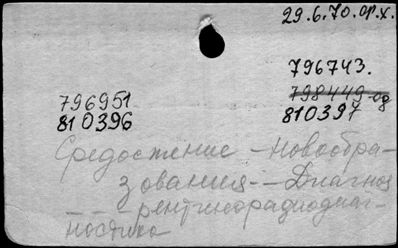 29.6.70.
796743.
796951. 798449-од
810396 810397
Средостение - Новообра-
зования - Диагнос
- - рентгенорадиодиаг-
ностика